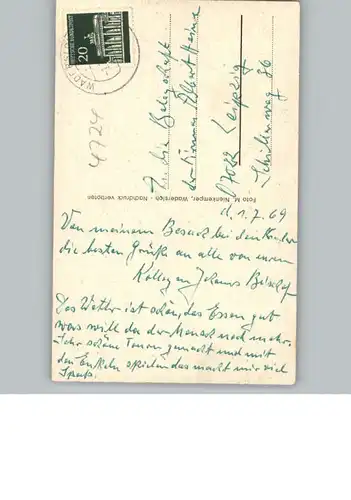 DEUTSCHE BUNDESPOST
20
WADERSLOH
4724
An die Belegschaft
der Firma Albert
07022 Leipzig
36
Foto M. Nienkemper, Wadersloh - Nachdruck verboten
d. 1.7.69
Von meinem Besuch bei den Kindern
die besten Grüße an alle von eurem
Kollegen Johannes Bischof
Das Wetter ist schön, das Essen gut
was will da der Mensch noch mehr.
Sehr schöne Touren gemacht und mit
den Enkeln spielen das macht mir viel
Spaß.